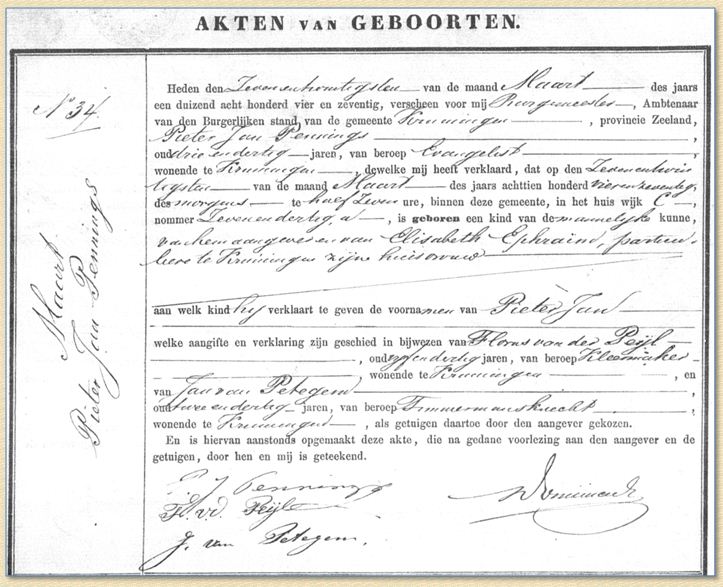 AKTEN VAN GEBOORTEN.
No 34.
Maart
Pieter Jan Pennings
Heden den Zevenentwintigsten van de maand Maart des jaars
een duizend acht honderd vier en zeventig, verscheen voor mij Burgemeester, Ambtenaar
van den Burgerlijken stand, van de gemeente Kruiningen, provincie Zeeland,
Pieter Jan Pennings,
oud drie en dertig jaren, van beroep Evangelist,
wonende te Kruiningen, dewelke mij heeft verklaard, dat op den Zevenentwin
tigsten van de maand Maart des jaars achttien honderd vierenzeventig,
des morgens te half Zeven ure, binnen deze gemeente, in het huis wijk C,
nommer Zevenendertig a, is geboren een kind van de mannelijke kunne,
van hem aangever en van Elisabeth Ephraim, particu
liere te Kruiningen zijne huisvrouw
aan welk kind hij verklaart te geven de voornamen van Pieter Jan
welke aangifte en verklaring zijn geschied in bijwezen van Florus van der Peijl
, oud vijfendertig jaren, van beroep Kleermaker
wonende te Kruiningen, en
van Jan van Petegem,
oud twee en dertig jaren, van beroep Timmermansknecht,
wonende te Kruiningen, als getuigen daartoe door den aangever gekozen.
En is hiervan aanstonds opgemaakt deze akte, die na gedane voorlezing aan den aangever en de
getuigen, door hen en mij is geteekend.
P J Pennings
F. vd. Peijl
J. van Petegem.